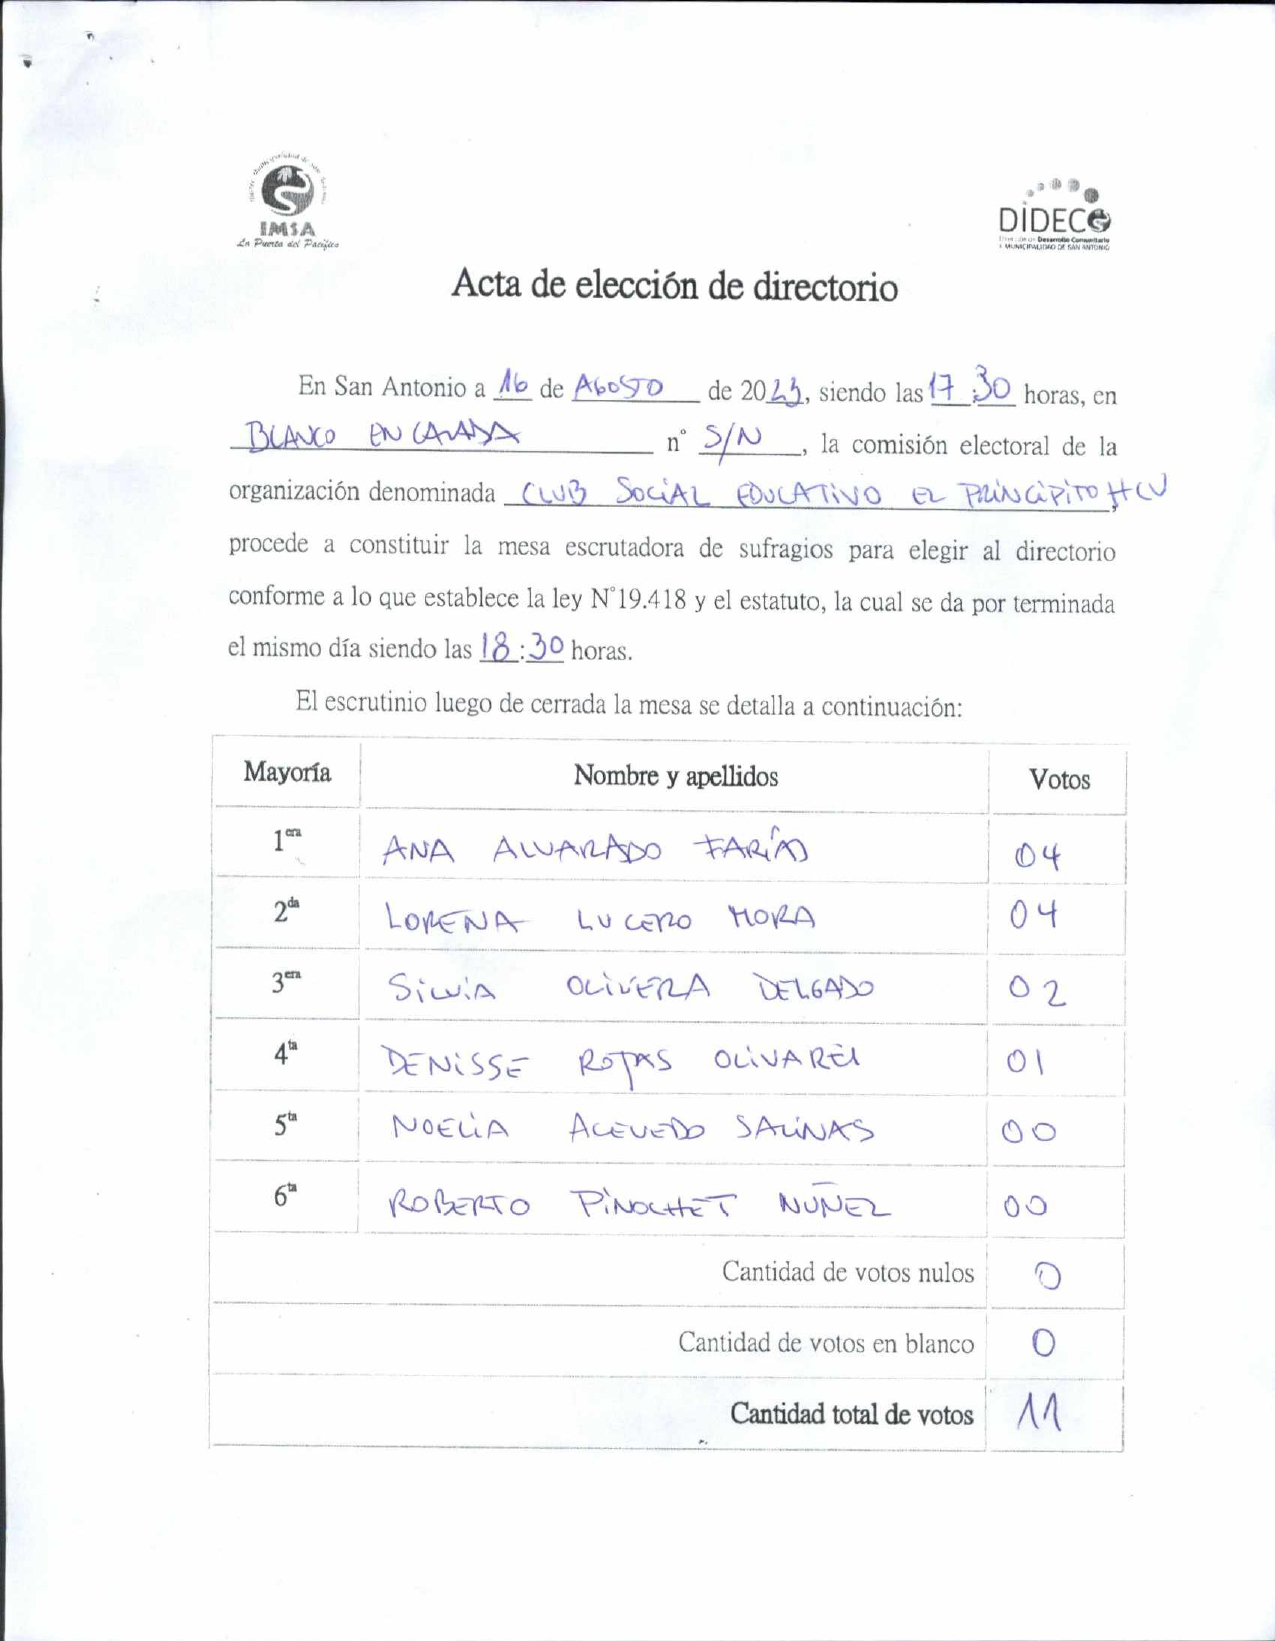 IMSA
La Puerta del Pacífico
DIDECO
Desarrollo Comunitario
I. MUNICIPALIDAD DE SAN ANTONIO
Acta de elección de directorio
En San Antonio a 16 de AGOSTO de 2023, siendo las 17:30 horas, en
BLANCO ENCALADA n° S/N, la comisión electoral de la
organización denominada CLUB SOCIAL EDUCATIVO EL PRINCIPITO HCV,
procede a constituir la mesa escrutadora de sufragios para elegir al directorio
conforme a lo que establece la ley N°19.418 y el estatuto, la cual se da por terminada
el mismo día siendo las 18:30 horas.
El escrutinio luego de cerrada la mesa se detalla a continuación:
Mayoría Nombre y apellidos Votos
1era ANA ALVARADO FARÍAS 04
2da LORENA LUCERO MORA 04
3era SILVIA OLIVERA DELGADO 02
4ta DENISSE ROJAS OLIVARES 01
5ta NOELIA ACEVEDO SALINAS 00
6ta ROBERTO PINOCHET NUÑEZ 00
Cantidad de votos nulos 0
Cantidad de votos en blanco 0
Cantidad total de votos 11